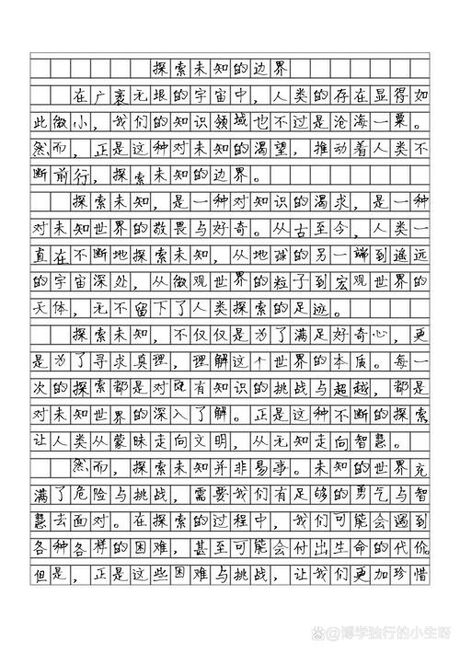 探索未知的边界
在广袤无垠的宇宙中，人类的存在显得如
此微小，我们的知识领域也不过是沧海一粟。
然而，正是这种对未知的渴望，推动着人类不
断前行，探索未知的边界。
探索未知，是一种对知识的渴求，是一种
对未知世界的敬畏与好奇。从古至今，人类一
直在不断地探索未知，从地球的另一端到遥远
的宇宙深处，从微观世界的粒子到宏观世界的
天体，无不留下了人类探索的足迹。
探索未知，不仅仅是为了满足好奇心，更
是为了寻求真理，理解这个世界的本质。每一
次的探索都是对既有知识的挑战与超越，都是
对未知世界的深入了解。正是这种不断的探索
让人类从蒙昧走向文明，从无知走向智慧。
然而，探索未知并非易事。未知的世界充
满了危险与挑战，需要我们有足够的勇气与智
慧去面对。在探索的过程中，我们可能会遇到
各种各样的困难，甚至可能会付出生命的代价
但是，正是这些困难与挑战，让我们更加珍惜
知乎 @博学独行的小生呀